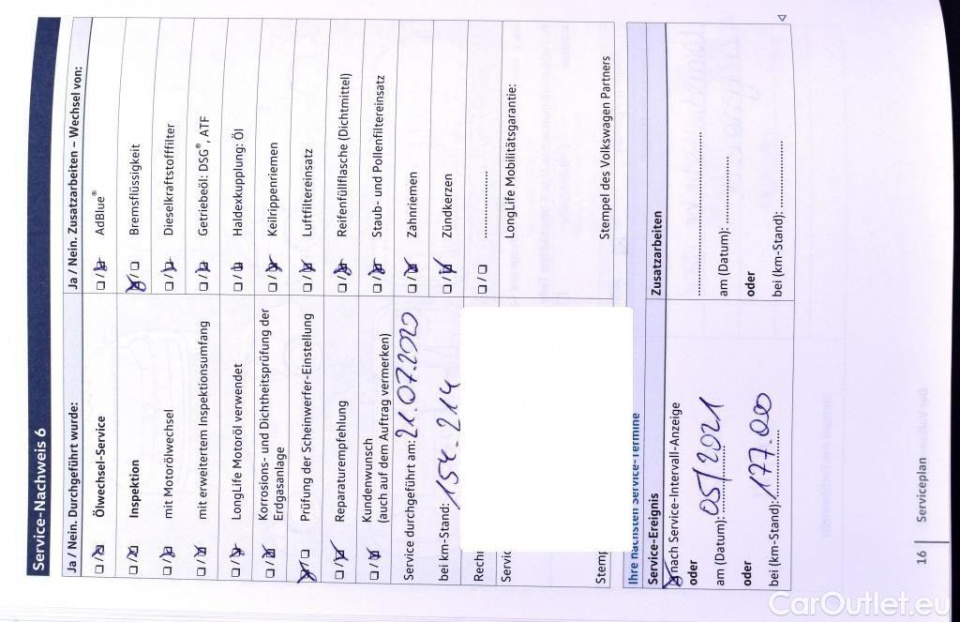 Service-Nachweis 6
Ja / Nein. Durchgeführt wurde:
☐/☒ Ölwechsel-Service
☐/☒ Inspektion
☐/☒ mit Motorölwechsel
☐/☒ mit erweitertem Inspektionsumfang
☐/☒ LongLife Motoröl verwendet
☐/☒ Korrosions- und Dichtheitsprüfung der
Erdgasanlage
☒/☐ Prüfung der Scheinwerfer-Einstellung
☐/☒ Reparaturempfehlung
☐/☒ Kundenwunsch
(auch auf dem Auftrag vermerken)
Service durchgeführt am: 21.07.2020
bei km-Stand: 154.214
Rechn
Servic
Stemp
Ja / Nein. Zusatzarbeiten – Wechsel von:
☐/☒ AdBlue®
☒/☐ Bremsflüssigkeit
☐/☒ Dieselkraftstofffilter
☐/☒ Getriebeöl: DSG®, ATF
☐/☒ Haldexkupplung: Öl
☐/☒ Keilrippenriemen
☐/☒ Luftfiltereinsatz
☐/☒ Reifenfüllflasche (Dichtmittel)
☐/☒ Staub- und Pollenfiltereinsatz
☐/☒ Zahnriemen
☐/☒ Zündkerzen
☐/☐ ....................
LongLife Mobilitätsgarantie:
Stempel des Volkswagen Partners
Ihre nächsten Service-Termine
Service-Ereignis
☒ nach Service-Intervall-Anzeige
oder
am (Datum): 05/2021
oder
bei (km-Stand): 177.000
Zusatzarbeiten
........................................
am (Datum): ....................
oder
bei (km-Stand): ....................
16 | Serviceplan
CarOutlet.eu